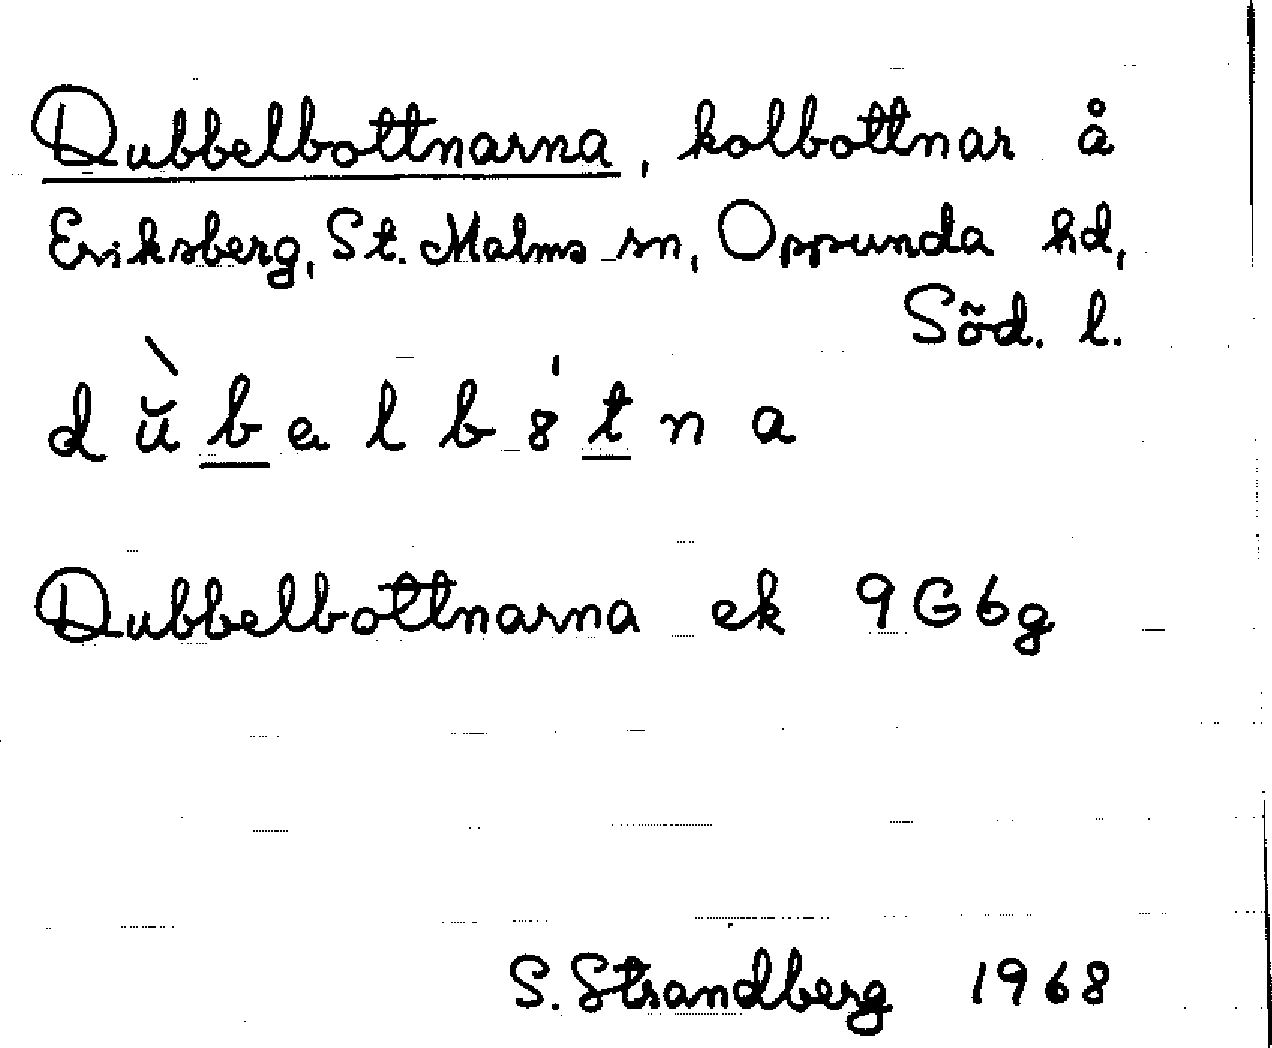 Dubbelbottnarna, kolbottnar å
Eriksberg, St. Malms sn, Oppunda hd,
Söd. l.
dŭ̀b̲elb8̍t̲na
Dubbelbottnarna ek 9G6g
S. Strandberg 1968